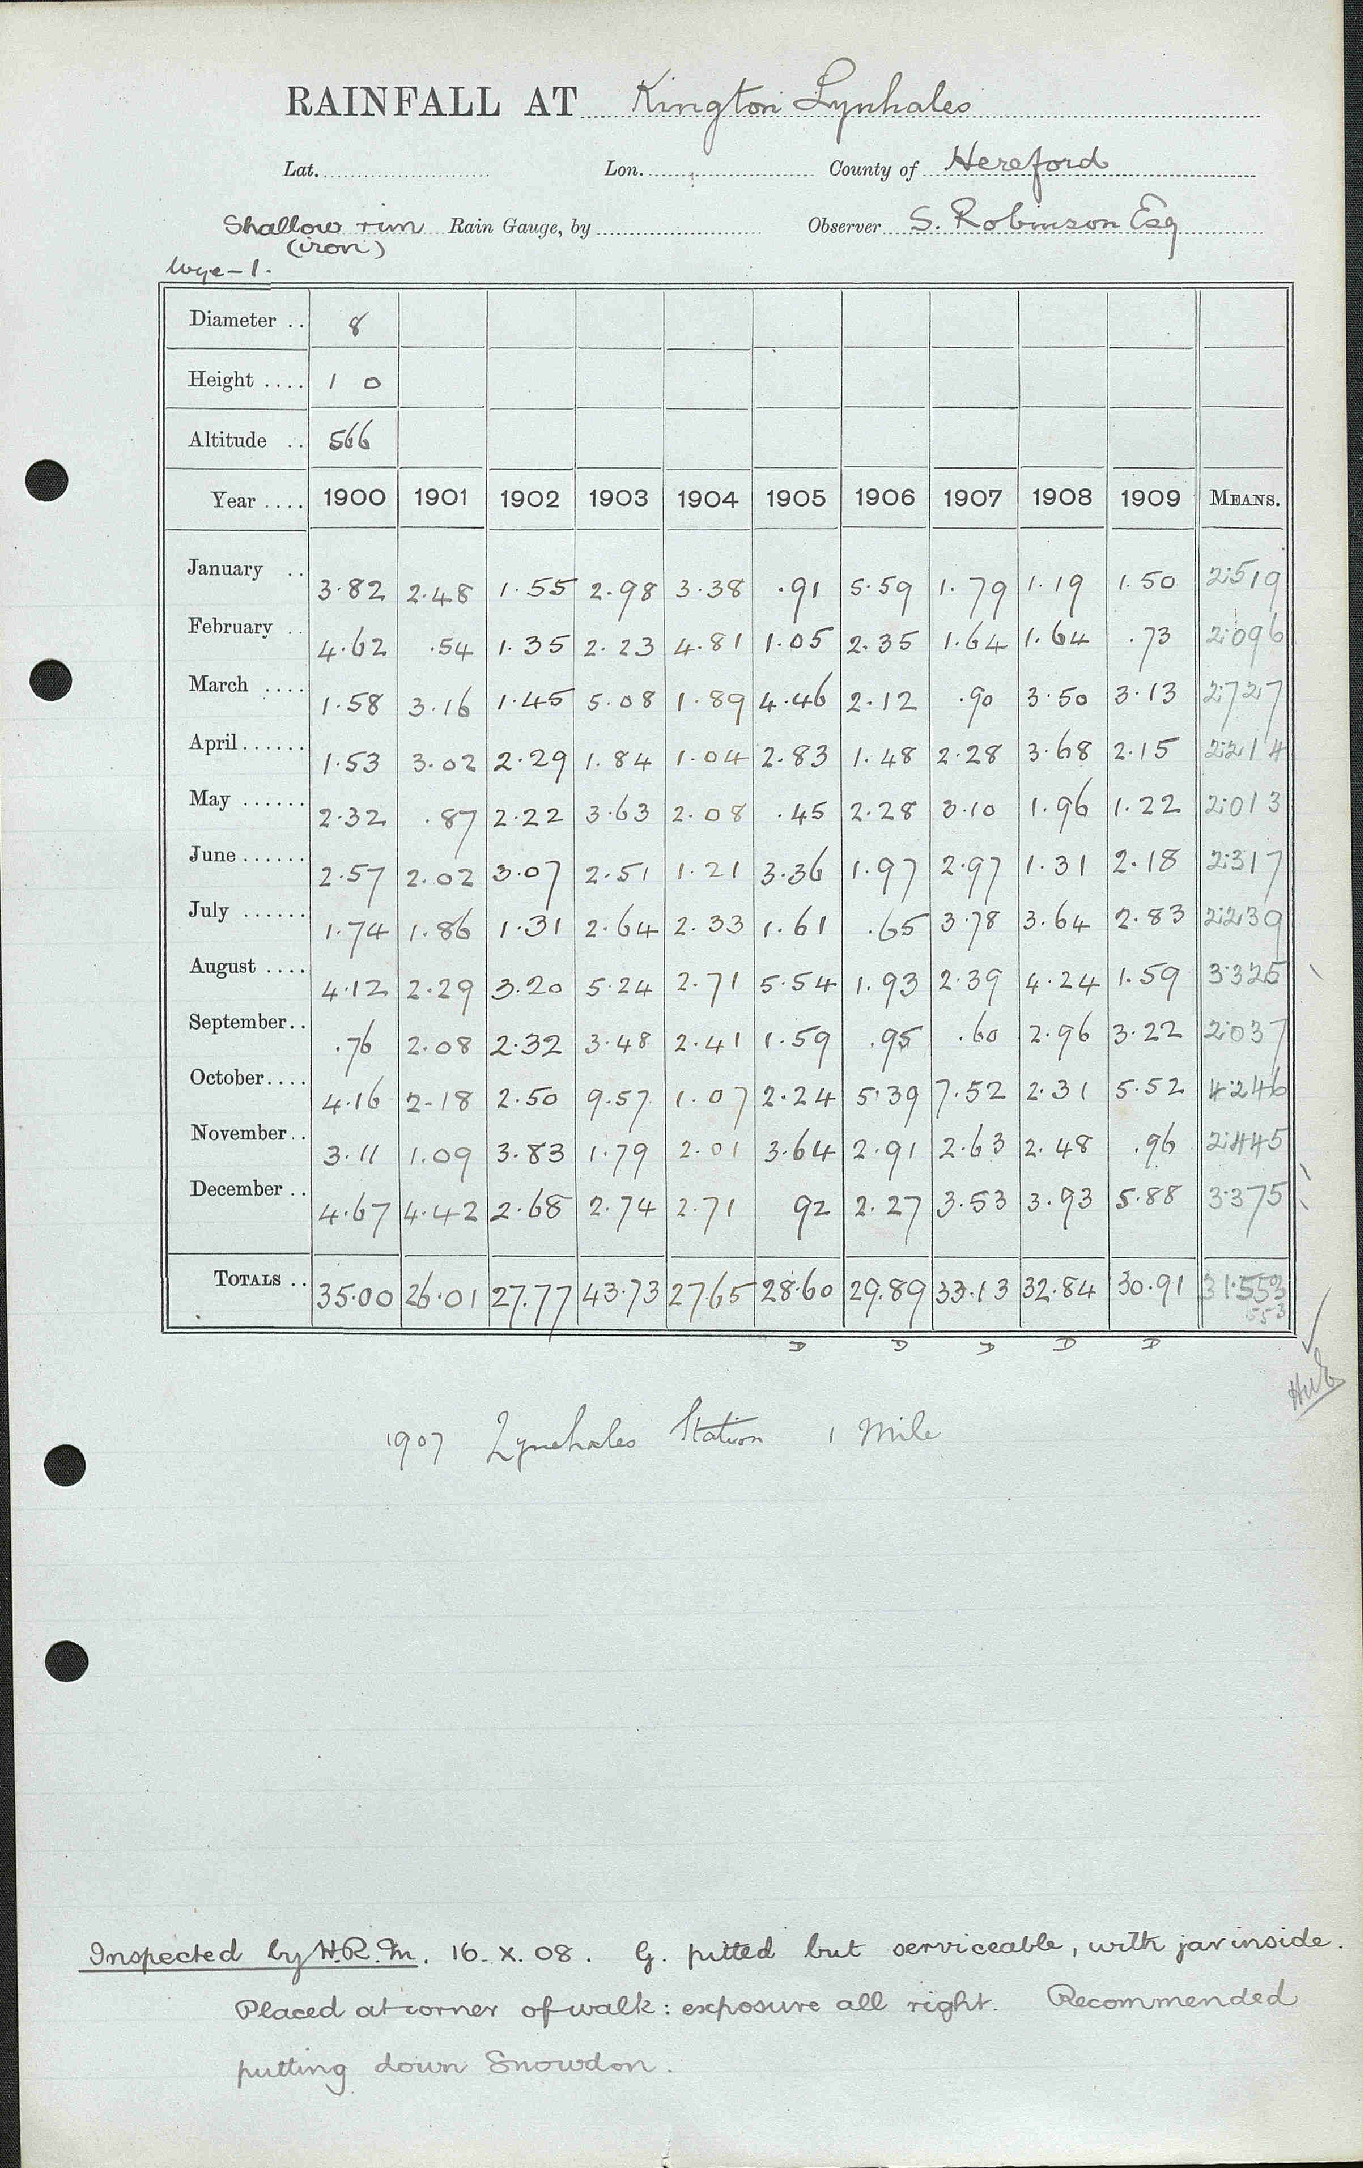 RAINFALL AT Kington Lynhales
Lat. Lon. County of Hereford
Shallow rim Rain Gauge, by Observer S. Robinson Esq
(iron)
Wye - 1.
Diameter .. 8
Height .... 1 0
Altitude .. 566
Year .... 1900 1901 1902 1903 1904 1905 1906 1907 1908 1909 MEANS.
January .. 3.82 2.48 1.55 2.98 3.38 .91 5.59 1.79 1.19 1.50 2.519
February .. 4.62 .54 1.35 2.23 4.81 1.05 2.35 1.64 1.64 .73 2.096
March .... 1.58 3.16 1.45 5.08 1.89 4.46 2.12 .90 3.50 3.13 2.727
April ...... 1.53 3.02 2.29 1.84 1.04 2.83 1.48 2.28 3.68 2.15 2.214
May ...... 2.32 .87 2.22 3.63 2.08 .45 2.28 3.10 1.96 1.22 2.013
June ...... 2.57 2.02 3.07 2.51 1.21 3.36 1.97 2.97 1.31 2.18 2.317
July ...... 1.74 1.86 1.31 2.64 2.33 1.61 .65 3.78 3.64 2.83 2.239
August .... 4.12 2.29 3.20 5.24 2.71 5.54 1.93 2.39 4.24 1.59 3.325
September .. .76 2.08 2.32 3.48 2.41 1.59 .95 .60 2.96 3.22 2.037
October .... 4.16 2.18 2.50 9.57 1.07 2.24 5.39 7.52 2.31 5.52 4.246
November .. 3.11 1.09 3.83 1.79 2.01 3.64 2.91 2.63 2.48 .96 2.445
December .. 4.67 4.42 2.68 2.74 2.71 92 2.27 3.53 3.93 5.88 3.375
TOTALS .. 35.00 26.01 27.77 43.73 27.65 28.60 29.89 33.13 32.84 30.91 31.553
553
D D D D D
1907 Lynehales Station 1 Mile
Inspected by H.R.M. 16.X.08. G. pitted but serviceable, with jar inside.
Placed at corner of walk: exposure all right. Recommended
putting down Snowdon.